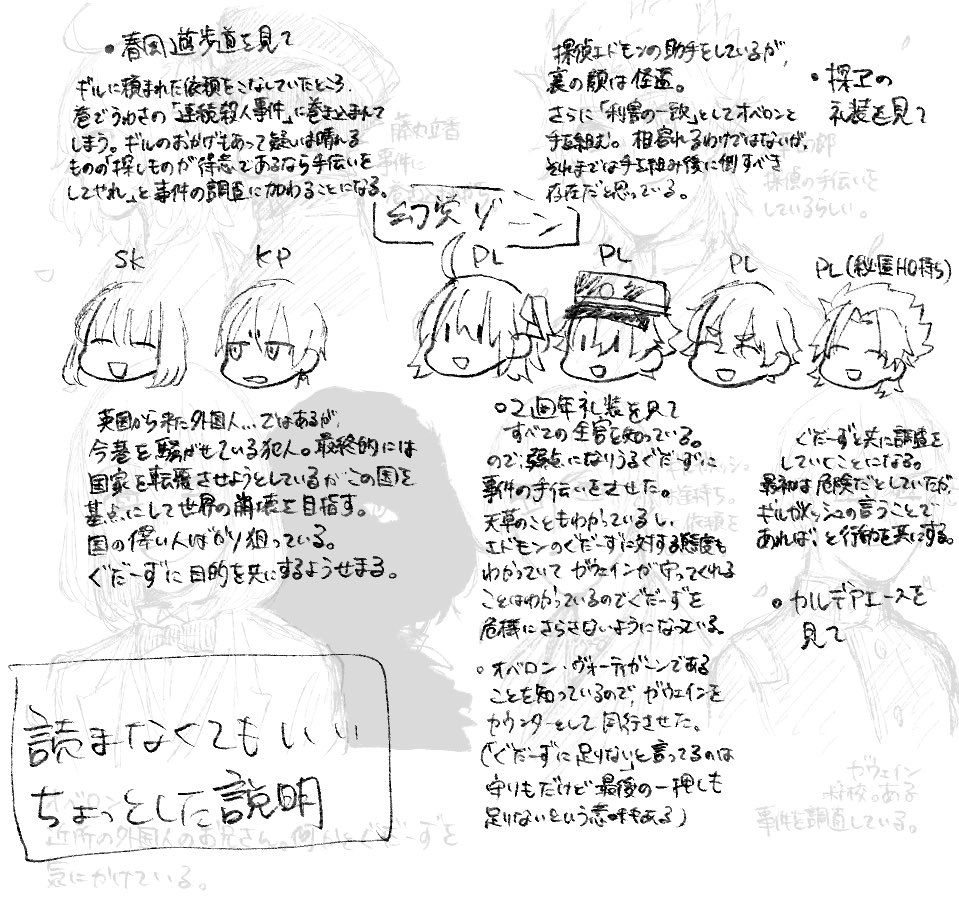 ・春風遊歩道を見て
ギルに頼まれた依頼をこなしていたところ、
巷でうわさの「連続殺人事件」に巻き込まれて
しまう。ギルのおかげもあって疑いは晴れる
ものの「探しものが得意であるなら手伝いを
してやれ」と事件の調査に加わることになる。
探偵エドモンの助手をしているが、
裏の顔は怪盗。
さらに「利害の一致」としてオベロンと
手を組む。相容れるわけではないが、
それまでは手を組み後に倒すべき
存在だと思っている。
・探正の
礼装を見て
藤丸立香
事件に
探偵の手伝いを
しているらしい。
幻蛍ゾーン
SK
KP
PL
PL
PL
PL(秘匿HO持ち)
英国から来た外国人…ではあるが、
今巷を騒がせている犯人。最終的には
国家を転覆させようとしているがこの国を
基点にして世界の崩壊を目指す。
国の偉い人ばかり狙っている。
ぐだーずに目的を共にするようせまる。
○2周年礼装を見て
すべての真実を知っている。
ので、弱点になりうるぐだーずに
事件の手伝いをさせた。
天草のこともわかっているし、
エドモンのぐだーずに対する態度も
わかっていてガウェインが守ってくれる
ことはわかっているのでぐだーずを
危機にさらさないようになっている。
・オベロン・ヴォーティガーンである
ことを知っているので、ガウェインを
カウンターとして同行させた。
(「ぐだーずに足りない」と言ってるのは
守りもだけど最後の一押しも
足りないという意味もある)
ぐだーずと共に調査を
していくことになる。
最初は危険だとしていたが、
ギルガメッシュの言うことで
あれば、と行動を共にする。
・カルデアエースを
見て
読まなくてもいい
ちょっとした説明
オベロン
近所の外国人のお兄さん。何かとぐだーずを
気にかけている。
ガウェイン
将校。ある
事件を調査している。